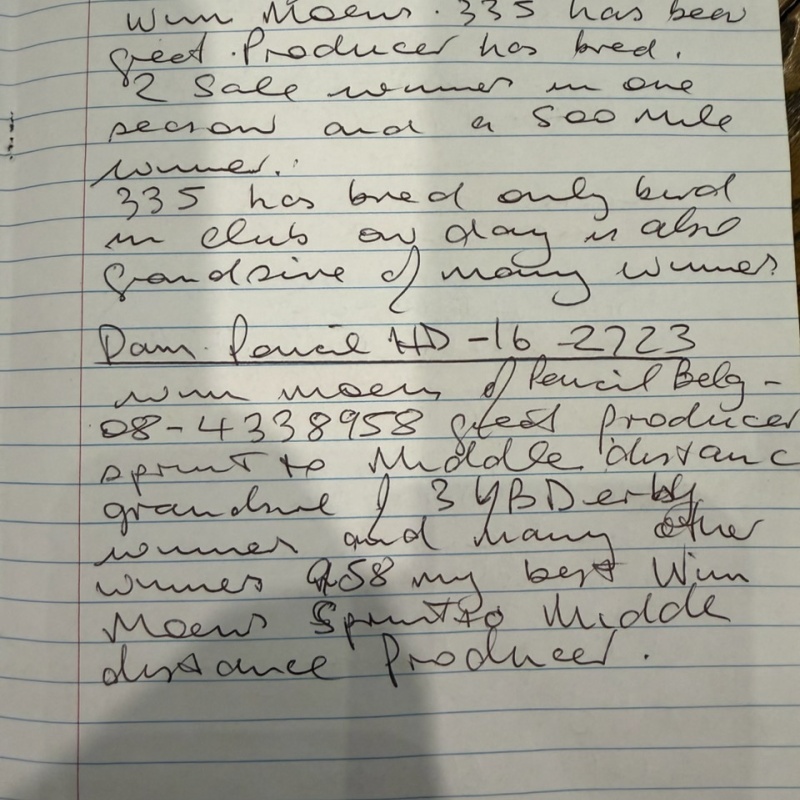 Wim Moens. 335 has been
great. Producer has bred.
2 Sale winner in one
season and a 500 Mile
winner.
335 has bred only bird
in club on day is also
Grandsire of many winner
Dam. Pencil HD-16-2723
wim moens of Pencil Belg-
08-4338958 great producer
sprint to Middle distanc
grandsire of 3 YB Derby
winner and many other
winner 958 my best Wim
Moens Sprint to Middle
distance Producer.